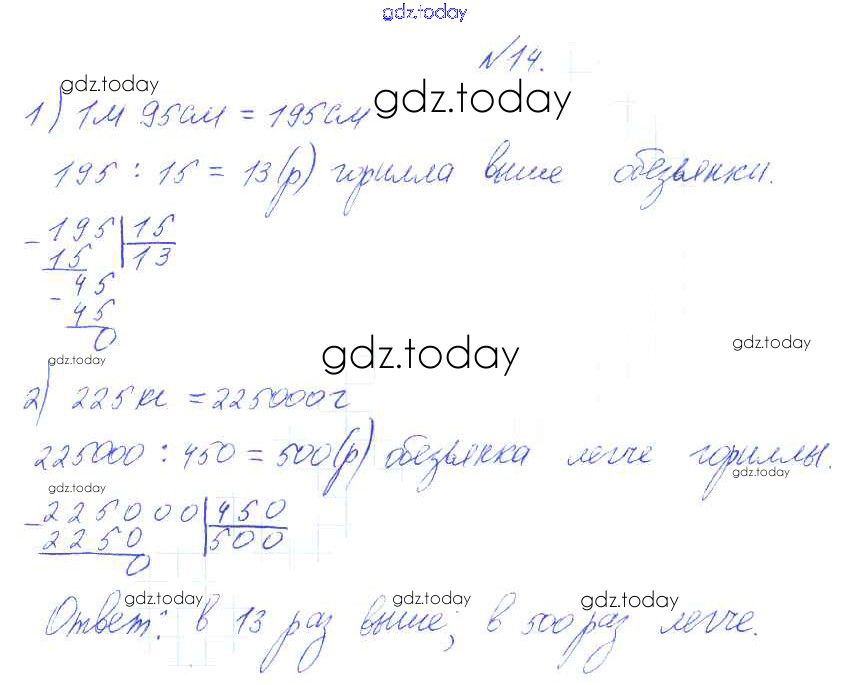 gdz.today
№14.
gdz.today
gdz.today
1) 1м 95см = 195см
195 : 15 = 13(р) горилла выше обезьянки.
- 195 | 15
15 | 13
- 45
45
0
gdz.today
gdz.today
gdz.today
2) 225кг = 225000г
225000 : 450 = 500(р) обезьянка легче гориллы.
gdz.today
gdz.today
- 225000 | 450
2250 | 500
0
gdz.today
gdz.today
gdz.today
Ответ: в 13 раз выше; в 500 раз легче.